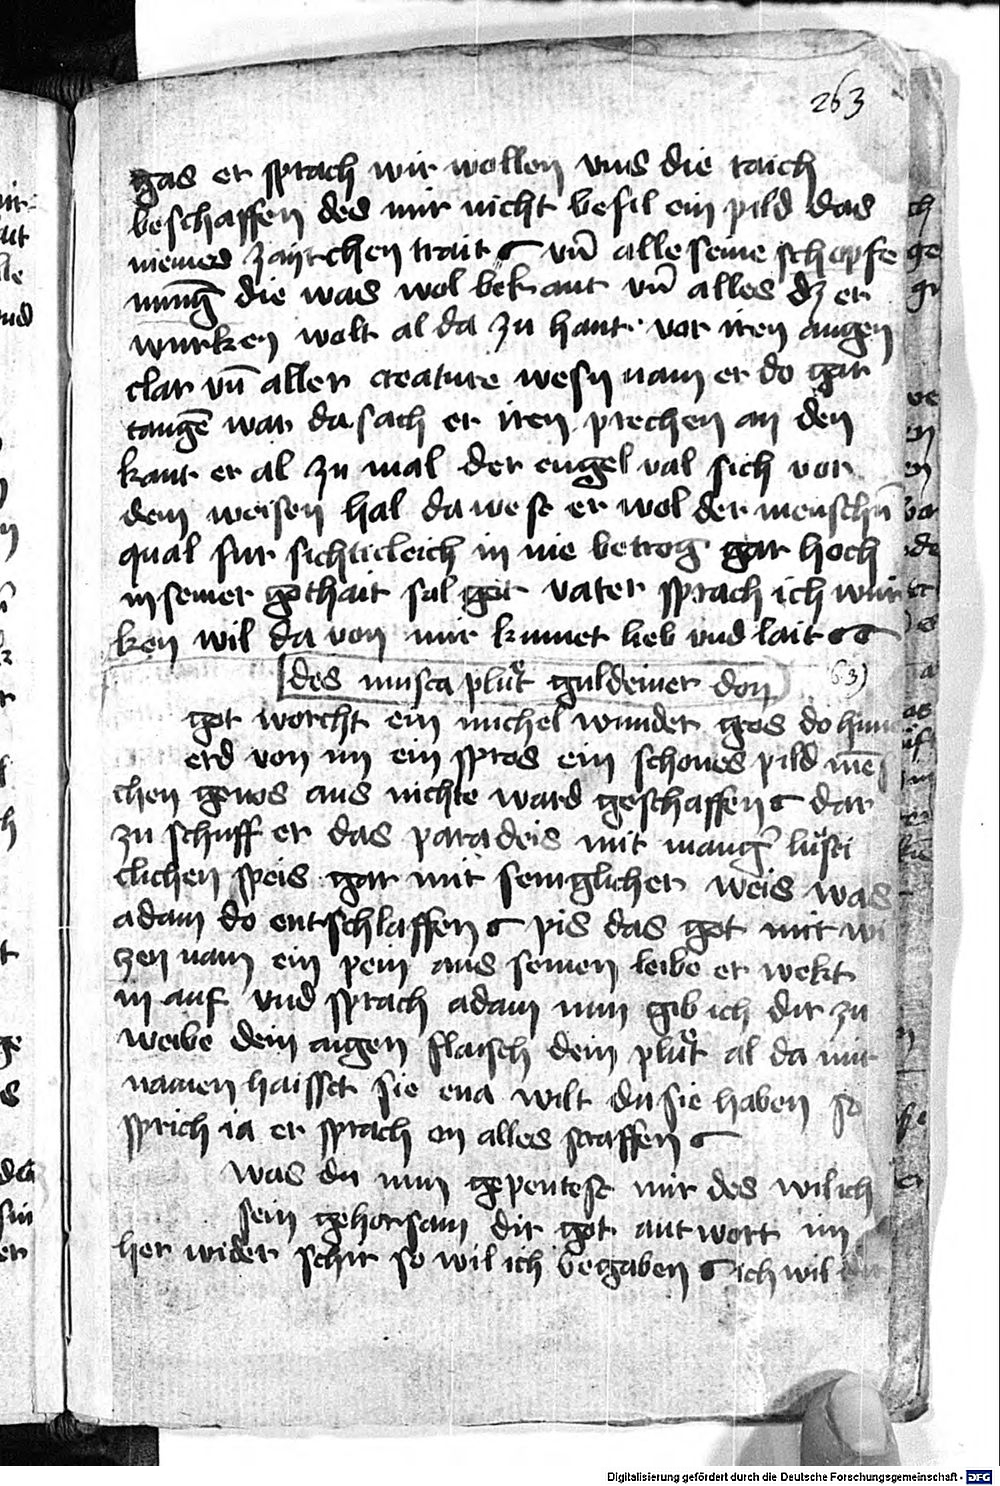 263
gas er sprach wir wollen vns die taich
beschaffen des mir nicht befil ein pild das
niemed trait vn̄ alle seine schopfe
nung die was wol bekant vn̄ alles dz er
wurken wolt al da zu hant vor iren augen
clar vn̄ aller creature wesn nam er do gar
taugē war da sach er iren prechen an den
kant er al zu mal der engel val sich vor
dem weisen hal da west er wol der menschn̄
qual fur sichticleich in nie betrog gar hoch
in seiner gothait sal got vater sprach ich wur
ken wil da von mir kumet lieb vnd lait
des musca plůt guldeiner don 63)
got worcht ein michel wunder gros do
erd von im ein spros ein schones pild mē
chen genos aus nichte ward geschaffen dar
zu schuff er das paradeis mit mang' lusti
clichen speis gar mit senigclicher weis was
adam do entschlaffen pis das got mit wi
zen nam ein pein aus seinen leibe er wekt
in auf vnd sprach adam nun gib ich dir zu
weibe dein aigen flaisch dein plůt al da mit
namen haisset sie eua wilt du sie haben so
sprich ia er sprach on alles straffen
was du nun gepeutest mir des wil ich
sein gehorsam dir got antwort im
her wider schir so wil ich begaben ich wil
Digitalisierung gefördert durch die Deutsche Forschungsgemeinschaft - DFG